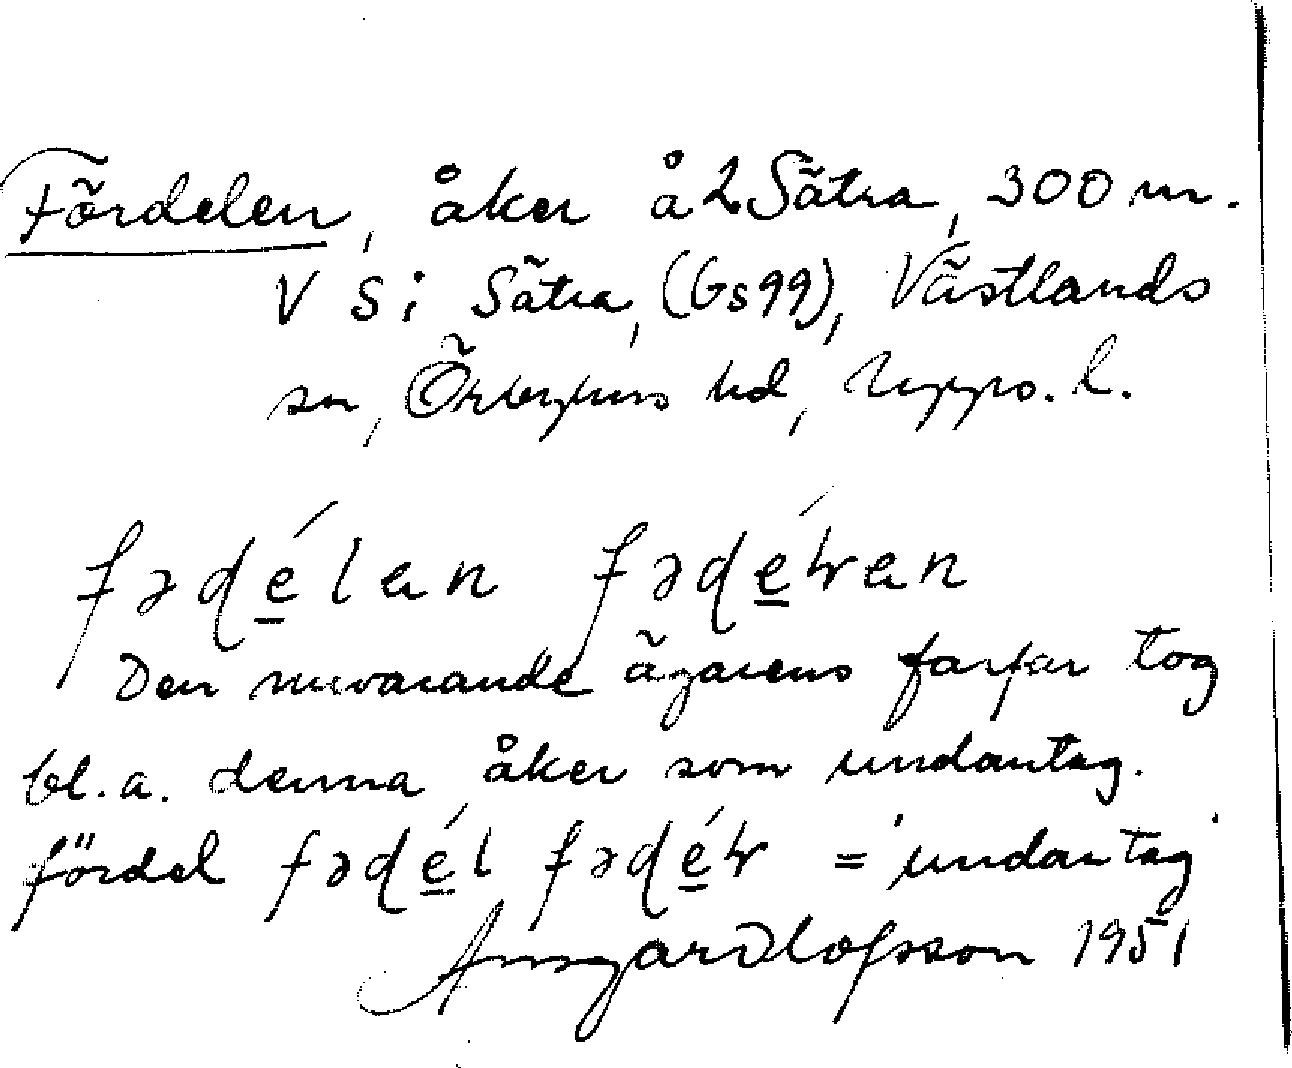 Fördelen, åker å 2 Sätra, 300 m.
V Si Sätra, (Gs99), Västlands
sn, Örbyhus hd, Upps. l.
fədé̱lan fədé̱ɽan
Den nuvarande ägarens farfar tog
bl.a. denna åker som undantag.
fördel fədé̱l fədé̱ɽ = 'undantag'
Ansgar Olofsson 1951